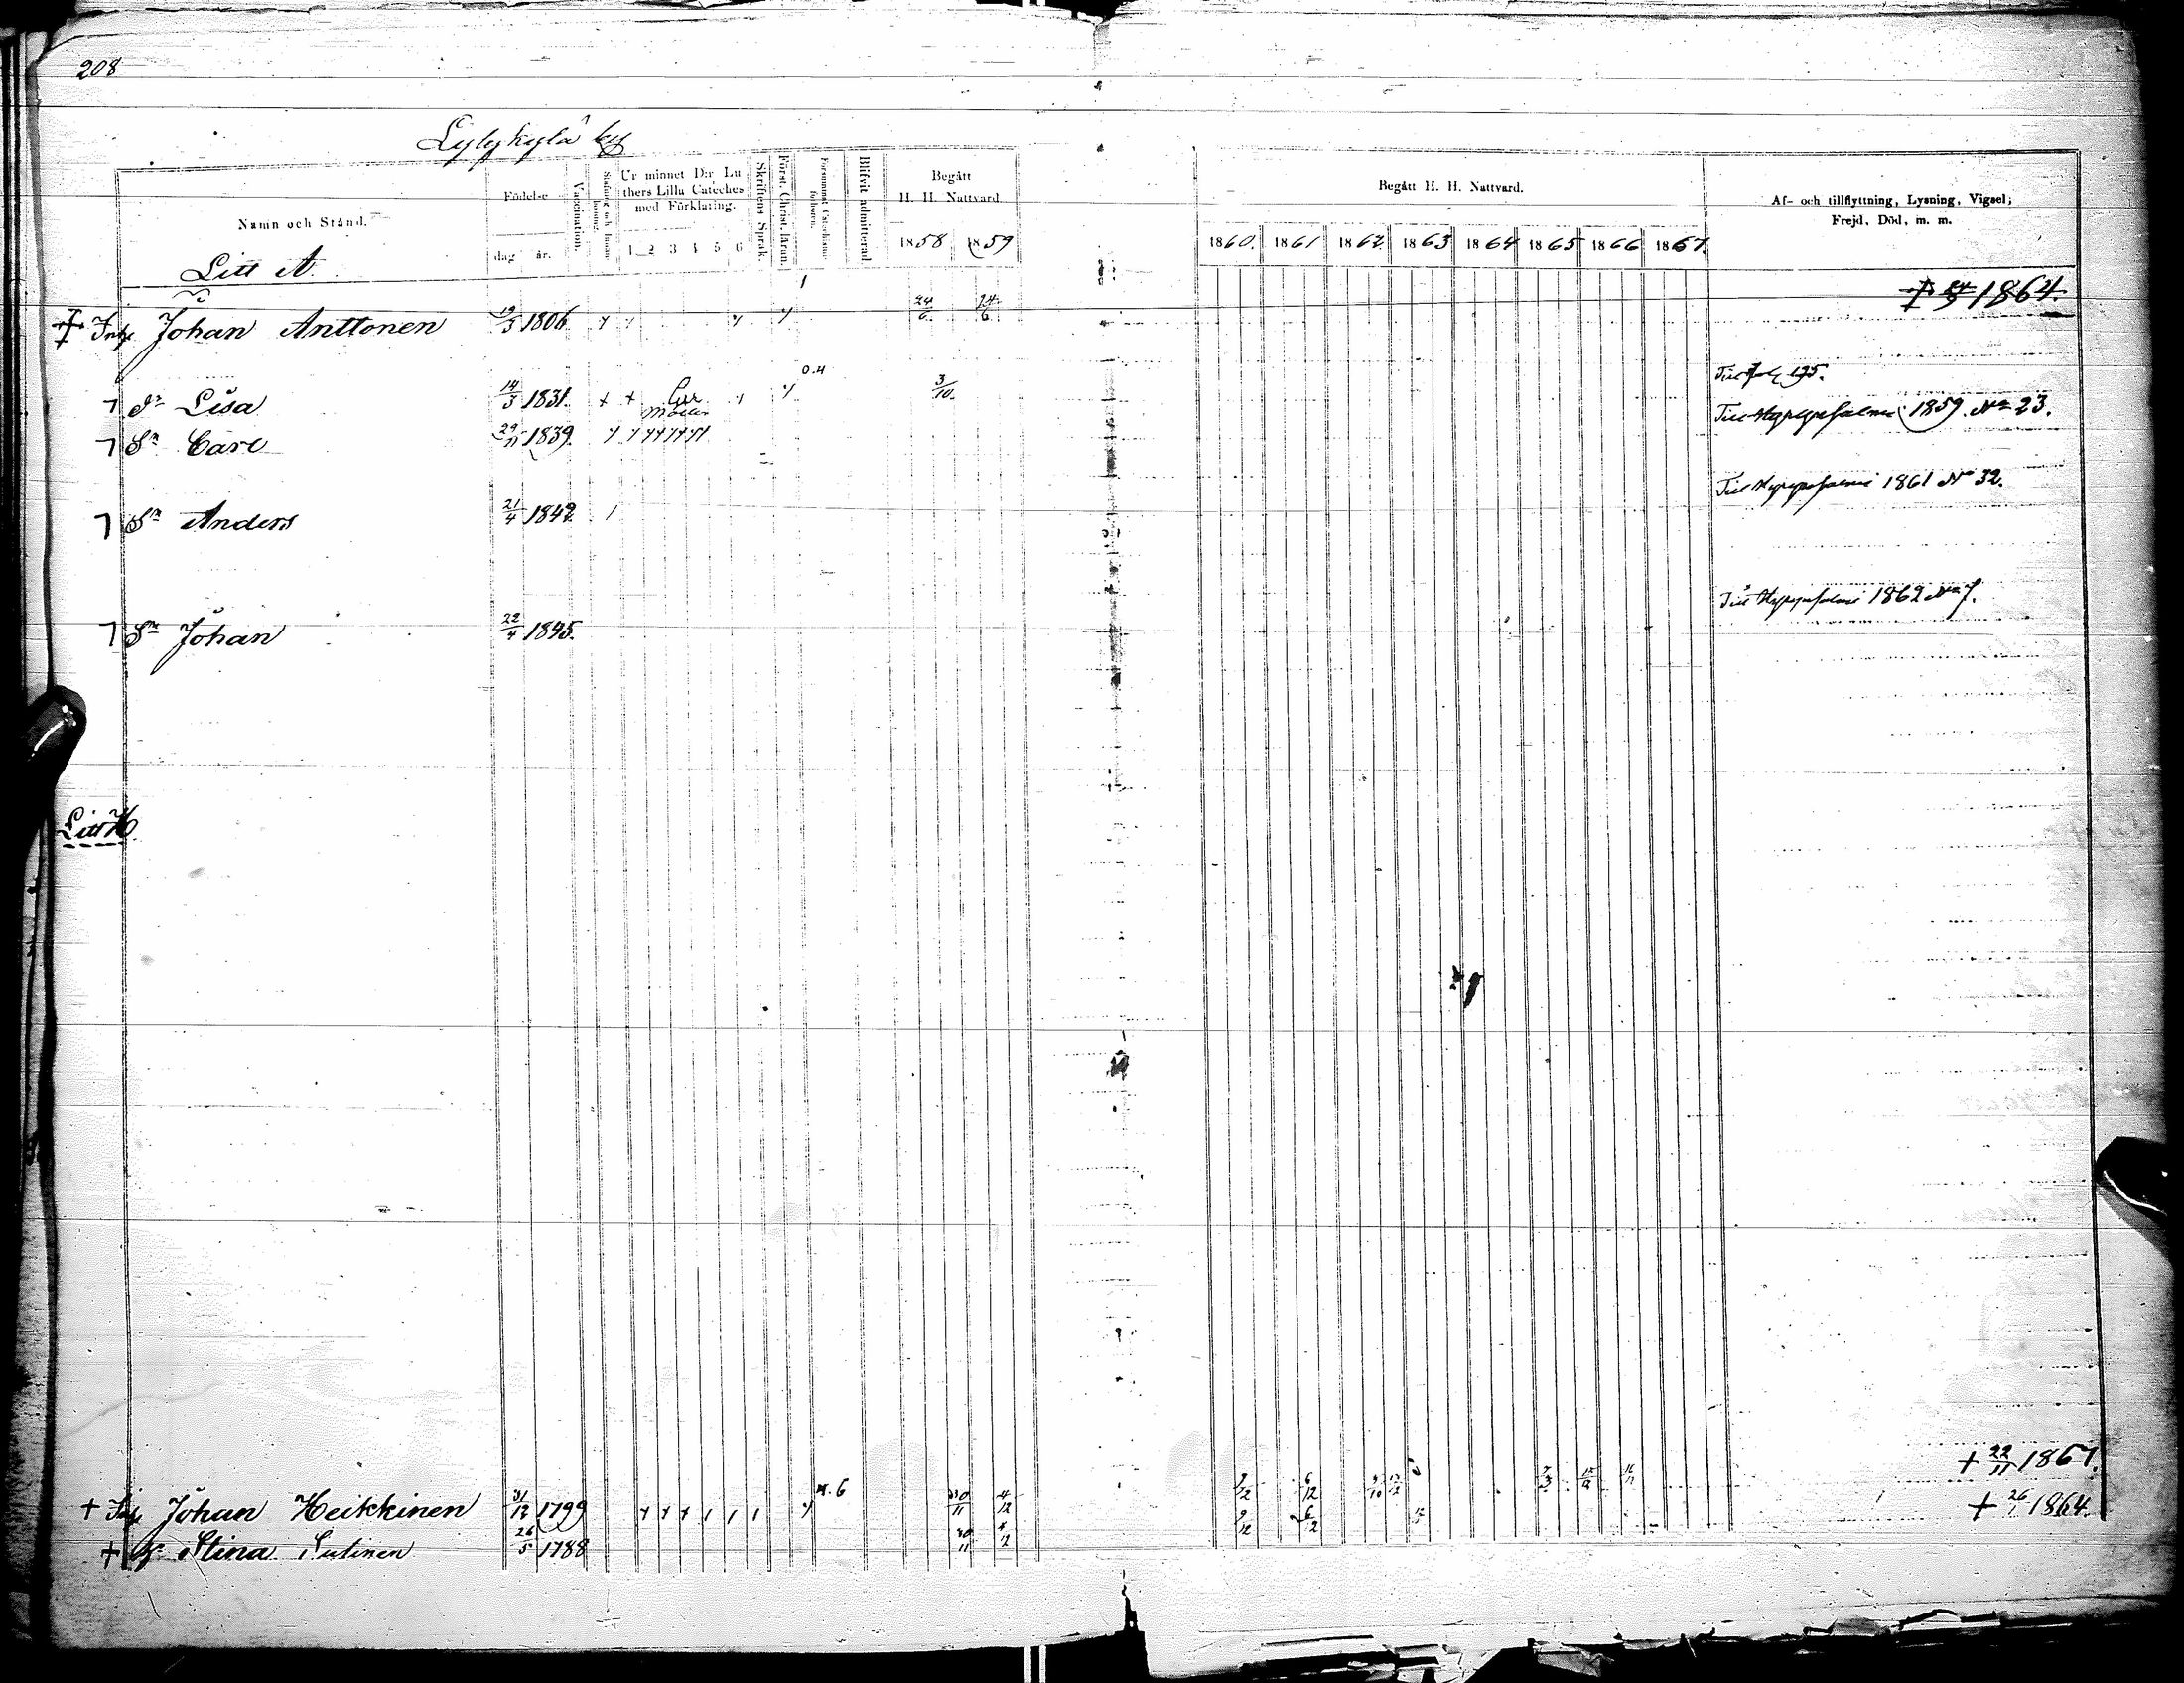 208
Lylykylä by
Namn och Stånd.
Födelse
dag år.
Vaccination.
Ur minnet D:r Lu
thers Lilla Cateches
med Förklaring.
1 2 3 4 5 6
Skriftens Språk.
Först. Christ. läran.
Blifvit admitterad
Begått
H. H. Nattvard.
1858 1859
Begått H. H. Nattvard.
1860. 1861 1862 1863 1864 1865 1866 1867.
Af- och tillflyttning, Lysning, Vigsel;
Frejd, Död, m. m.
Litt A.
Johan Anttonen 19/3 1806 24/6 1864.
Dr Lisa 14/3 1831. 0.4 3/10. Till fol 195.
Sn Carl 29/11 1839. Till Hyrynsalmi 1859. No 23.
Sn Anders 21/4 1842. Till Hyrynsalmi 1861 No 32.
Sn Johan 22/4 1845. Till Hyrynsalmi 1862 No 7.
Litt H.
+ Johan Heikkinen 31/12 1799 30/11 4/12 + 22/11 1867.
+ Stina Sutinen 26/5 1788 30/11 + 26/1 1864.